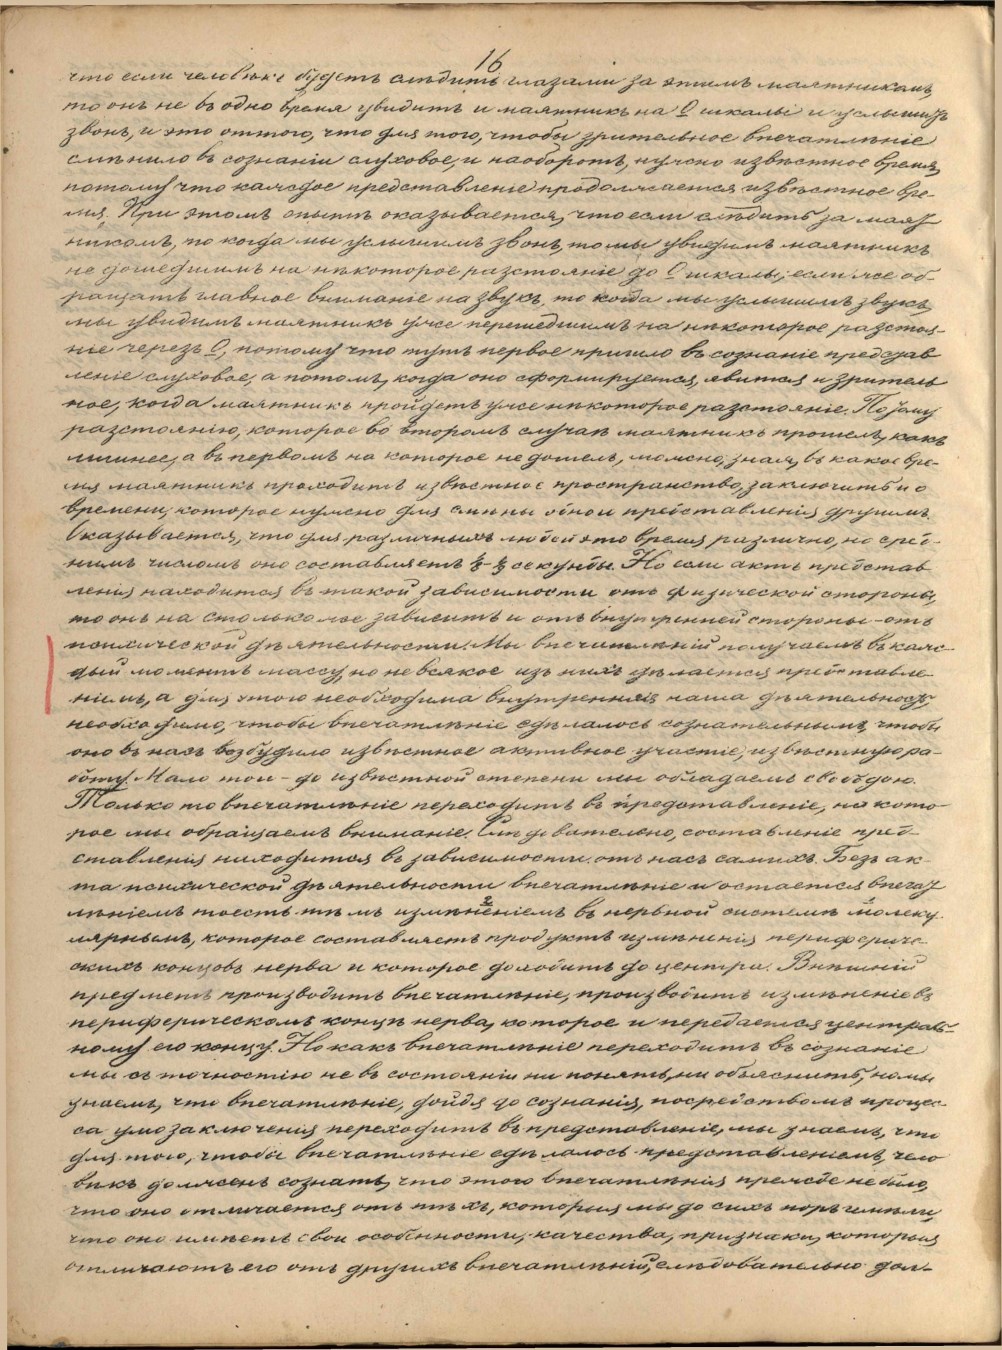 16
что если человѣкъ будетъ слѣдить глазами за этимъ маятникомъ,
то онъ не въ одно время увидитъ и маятникъ на 0 шкалы и услышитъ
звонъ, и это оттого, что для того, чтобы зрительное впечатлѣніе
смѣнило въ сознаніи слуховое, и наоборотъ, нужно извѣстное время,
потому что каждое представленіе продолжается извѣстное вре-
мя. При этомъ опытѣ оказывается, что если слѣдить за маят
никомъ, то когда мы услышимъ звонъ, то мы увидимъ маятникъ
не дошедшимъ на нѣкоторое разстояніе до 0 шкалы; если же об-
ращать главное вниманіе на звукъ, то когда мы услышимъ звукъ,
мы увидимъ маятникъ уже перешедшимъ на нѣкоторое разстоя-
ніе черезъ 0, потому что тутъ первое пришло въ сознаніе представ
леніе слуховое, а потомъ, когда оно сформируется, явится и зритель
ное, когда маятникъ пройдетъ уже нѣкоторое разстояніе. По тому
разстоянію, которое во второмъ случаѣ маятникъ прошелъ, какъ
лишнее, а въ первомъ на которое не дошелъ, можно, зная, въ какое вре-
мя маятникъ проходитъ извѣстное пространство, заключить и о
времени, которое нужно для смѣны одного представленія другимъ.
Оказывается, что для различныхъ людей это время различно, но сред-
нимъ числомъ оно составляетъ секунды. Но если актъ представ
ленія находится въ такой зависимости отъ физической стороны,
то онъ на столько же зависитъ и отъ внутренней стороны - отъ
психической дѣятельности. Мы впечатлѣній получаемъ въ каж-
дый моментъ массу, но не всякое изъ нихъ дѣлается представле-
ніемъ, а для этого необходима внутренняя наша дѣятельность,
необходимо, чтобы впечатлѣніе сдѣлалось сознательнымъ, чтобы
оно въ насъ возбудило извѣстное активное участіе, извѣстную ра-
боту. Мало того - до извѣстной степени мы обладаемъ свободою.
Только то впечатлѣніе переходитъ въ представленіе, на кото-
рое мы обращаемъ вниманіе. Слѣдовательно, составленіе пред-
ставленія находится въ зависимости отъ насъ самихъ. Безъ ак-
та психической дѣятельности впечатлѣніе и остается впечат
лѣніемъ то есть тѣмъ измѣненіемъ въ нервной системѣ молеку
лярнымъ, которое составляетъ продуктъ измѣненія перифериче-
скихъ концовъ нерва и которое доходитъ до центра. Внѣшній
предметъ производитъ впечатлѣніе, производитъ измѣненіе въ
периферическомъ концѣ нерва, которое и передается централь-
ному его концу. Но какъ впечатлѣніе переходитъ въ сознаніе
мы съ точностію не въ состояніи ни понять, ни объяснить, но мы
знаемъ, что впечатлѣніе, дойдя до сознанія, посредствомъ процес-
са умозаключенія переходитъ въ представленіе, мы знаемъ, что
для того, чтобы впечатлѣніе сдѣлалось представленіемъ, чело
вѣкъ долженъ сознать, что этого впечатлѣнія прежде не было,
что оно отличается отъ тѣхъ, которыя мы до сихъ поръ имѣли,
что оно имѣетъ свои особенности, качества, признаки, которыя
отличаютъ его отъ другихъ впечатлѣній, слѣдовательно дол-